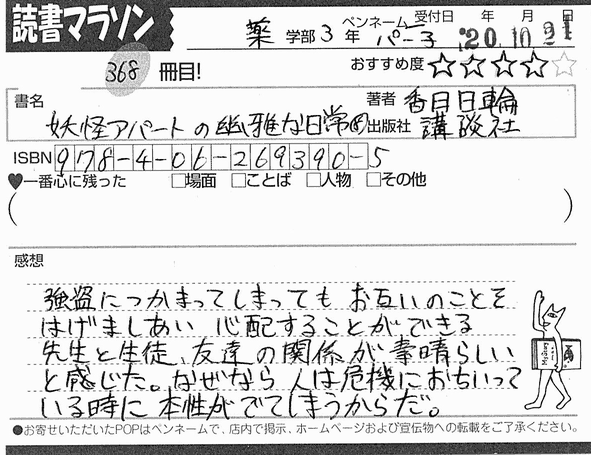 読書マラソン
薬 学部 3 年 ペンネーム パー子 受付日 年 月 日 '20.10.21
368 冊目! おすすめ度 ☆☆☆☆☆
書名 妖怪アパートの幽雅な日常⑧
著者 香月日輪
出版社 講談社
ISBN 978-4-06-269390-5
♥一番心に残った □場面 □ことば □人物 □その他
( )
感想
強盗につかまってしまっても お互いのことを
はげましあい 心配することができる
先生と生徒、友達の関係が素晴らしい
と感じた。なぜなら 人は危機におちいって
いる時に 本性がでてしまうからだ。
●お寄せいただいたPOPはペンネームで、店内で掲示、ホームページおよび宣伝物への転載をご了承ください。